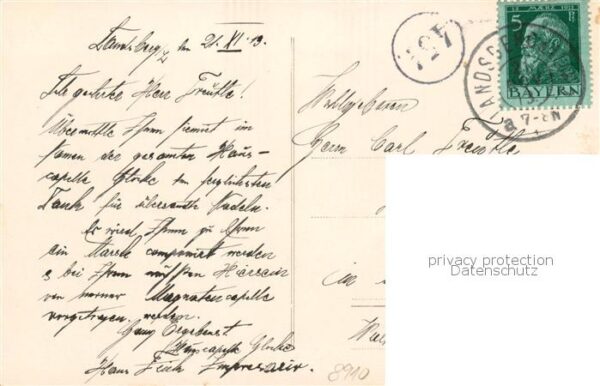 Landsberg, den 21. XI. 13.
Sehr geehrter Herr Freutle!
Übermittle Ihnen hiemit im
Namen der gesamten Haus-
capelle Glocke den herzlichsten
Dank für übersandte Nadeln.
Es wird Ihnen zu Ehren
ein Marsch componiert werden
bei Ihrem nächsten Hiersein
von meiner Magnatencapelle
vorgetragen werden.
Ganz Ergebenst
Hauscapelle Glocke
Hans Impresario.
8910
127
Wohlgeboren
Herrn Carl Freutle
in
12. MÄRZ 1911
5 Pf
BAYERN
LANDSBERG
7-8 N
privacy protection
Datenschutz